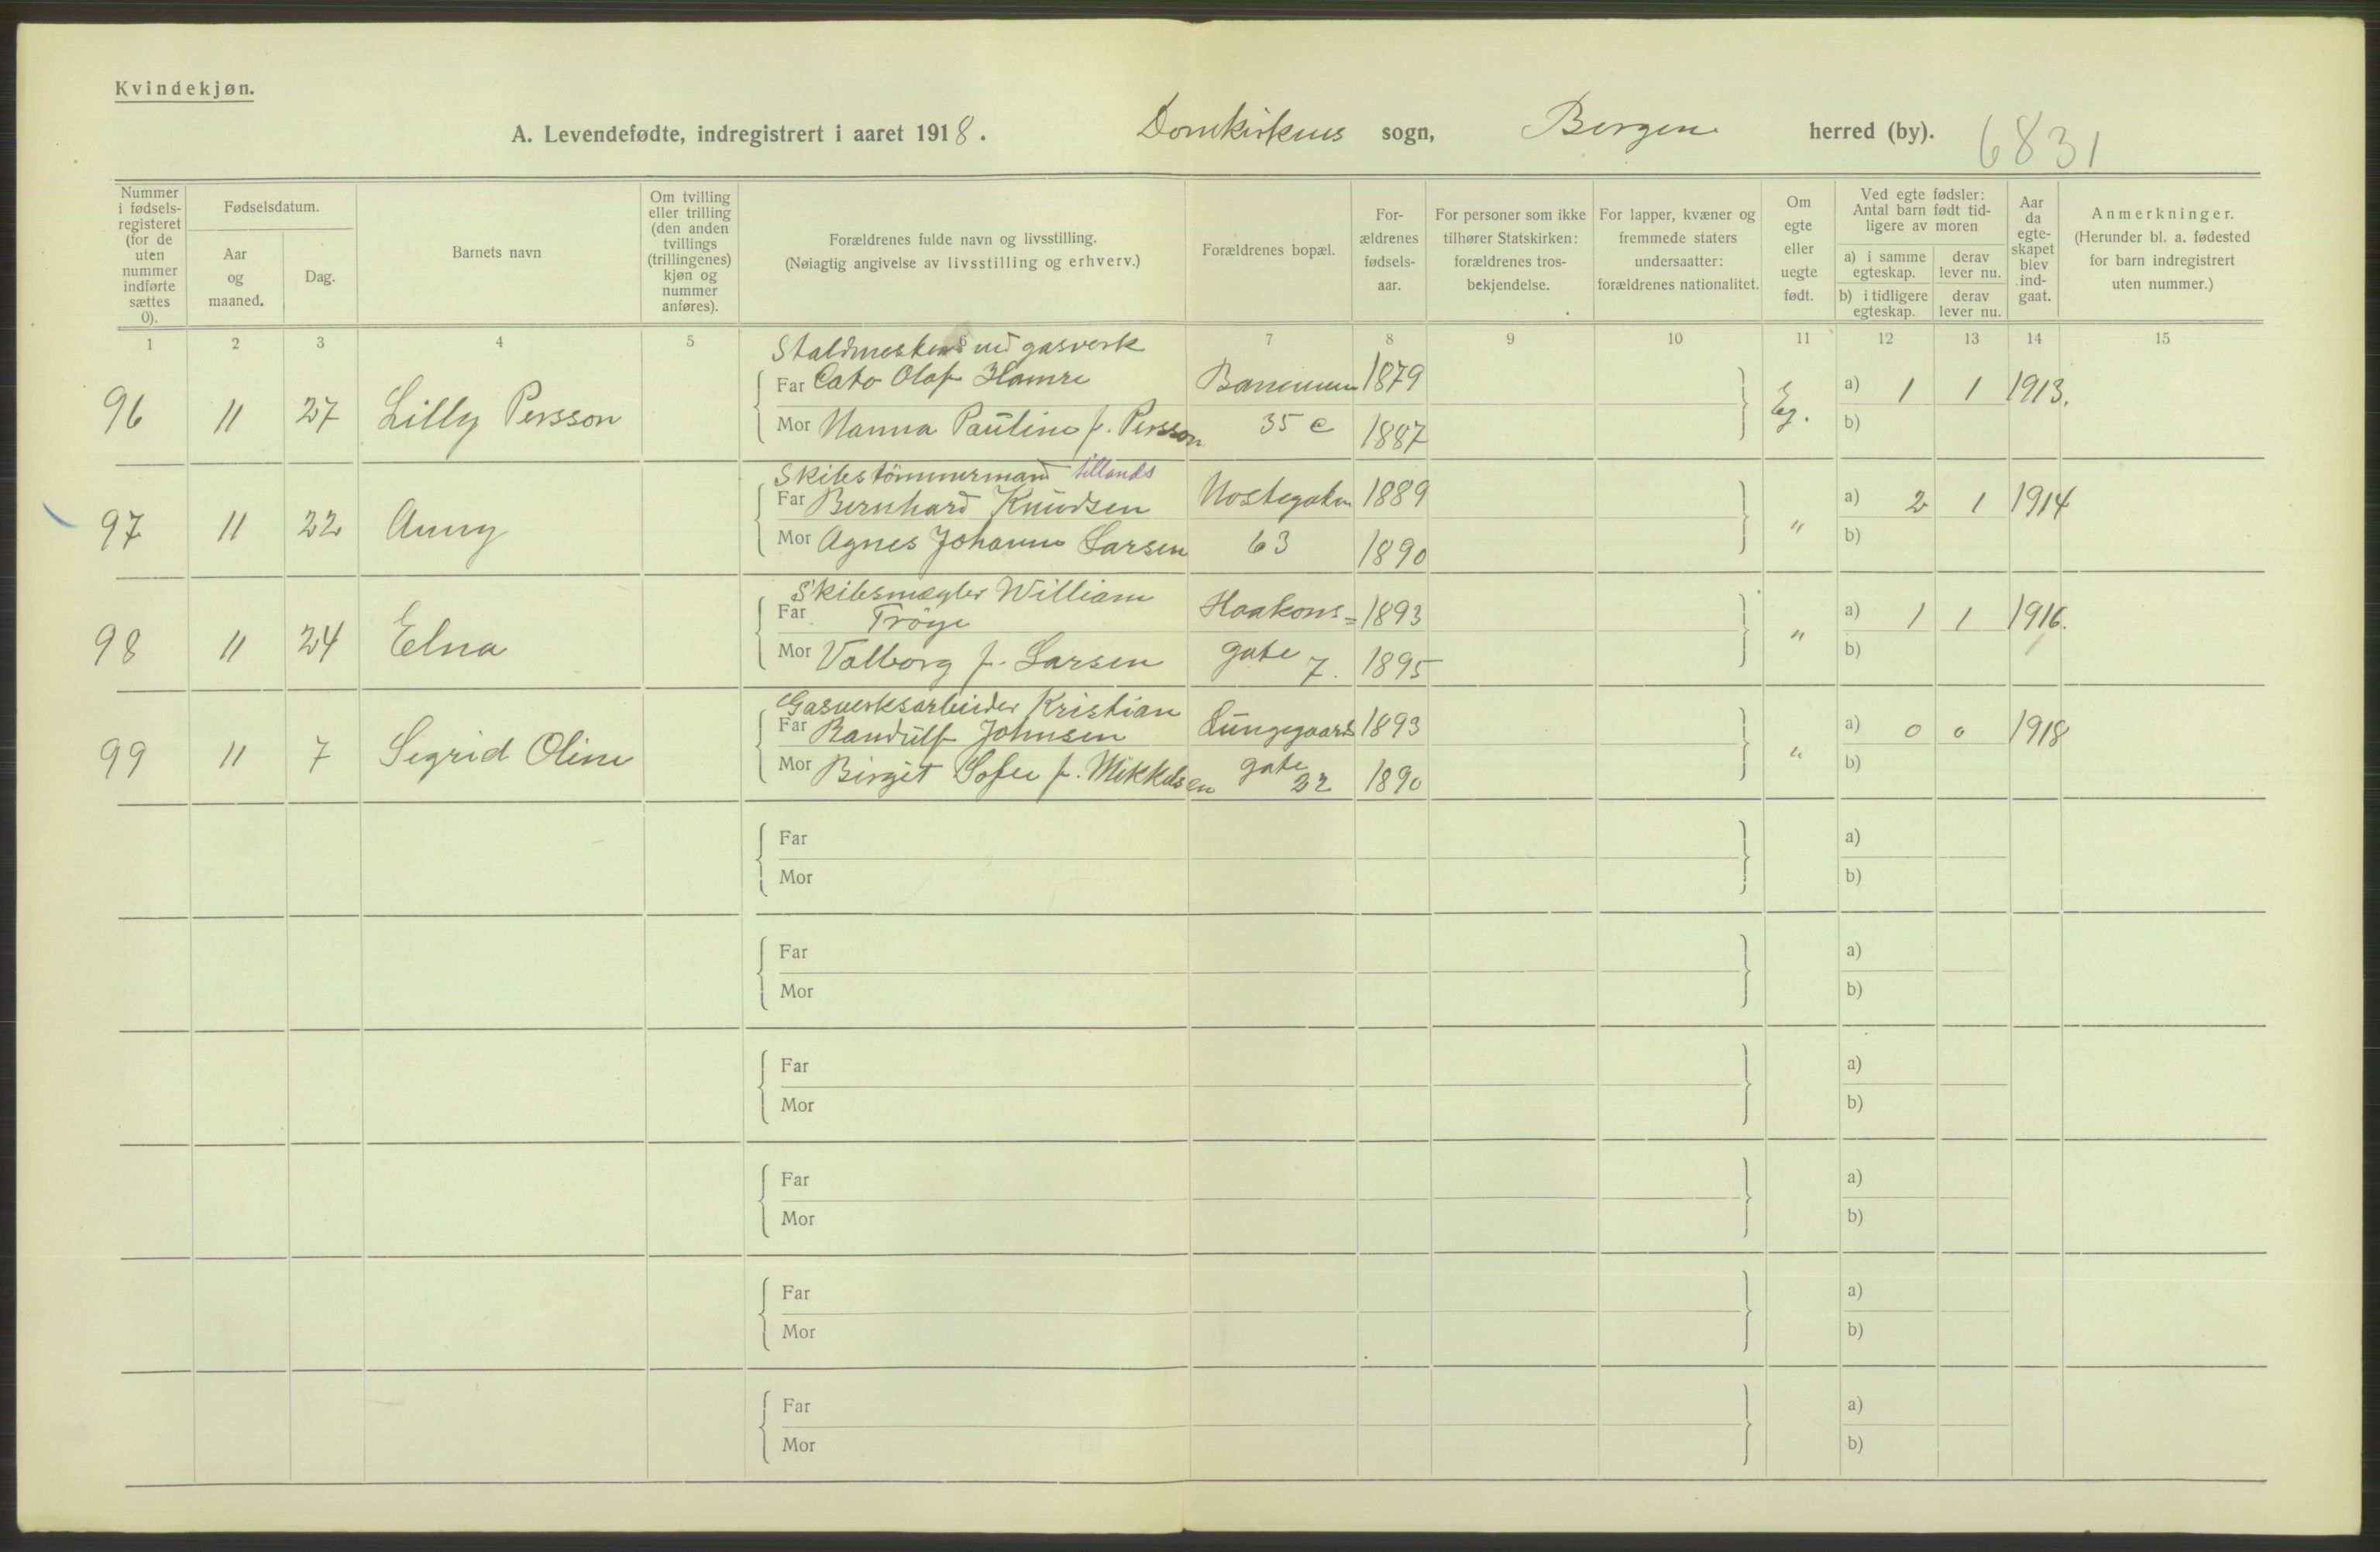 Kvindekjøn.
A. Levendefødte, indregistrert i aaret 1918. Domkirkens sogn, Bergen herred (by). 6831
Nummer i fødsels-registeret (for de uten nummer indførte sættes 0).
Fødselsdatum.
Aar og maaned.
Dag.
Barnets navn
Om tvilling eller trilling (den anden tvillings (trillingenes) kjøn og nummer anføres).
Forældrenes fulde navn og livsstilling.
(Nøiagtig angivelse av livsstilling og erhverv.)
Forældrenes bopæl.
For-ældrenes fødsels-aar.
For personer som ikke tilhører Statskirken: forældrenes tros-bekjendelse.
For lapper, kvæner og fremmede staters undersaatter: forældrenes nationalitet.
Om egte eller uegte født.
Ved egte fødsler: Antal barn født tid-ligere av moren
a) i samme egteskap.
derav lever nu.
b) i tidligere egteskap.
derav lever nu.
Aar da egte-skapet blev ind-gaat.
Anmerkninger.
(Herunder bl. a. fødested for barn indregistrert uten nummer.)
1 2 3 4 5 6 7 8 9 10 11 12 13 14 15
Staldmester ved gasverk
96 11 27 Lilly Persson Far Cato Olaf Hamre 1879 Eg. a) 1 1 1913.
Mor Nanna Pauline f. Persson 35 c 1887 b)
Skibstömmermand tillands
97 11 22 Anny Far Bernhard Knudsen Nostegaten 1889 " a) 2 1 1914
Mor Agnes Johanne Larsen 63 1890 b)
Skibsmægler William
98 11 24 Elna Far Tröye Haakons= 1893 " a) 1 1 1916.
Mor Valborg f. Larsen gate 7. 1895 b)
Gasverksarbeider Kristian
99 11 7 Sigrid Oline Far Randulf Johnsen Lungegaards 1893 " a) 0 0 1918
Mor Birgit Sofie f. Mikkelsen gate 22 1890 b)
Far a)
Mor b)
Far a)
Mor b)
Far a)
Mor b)
Far a)
Mor b)
Far a)
Mor b)
Far a)
Mor b)